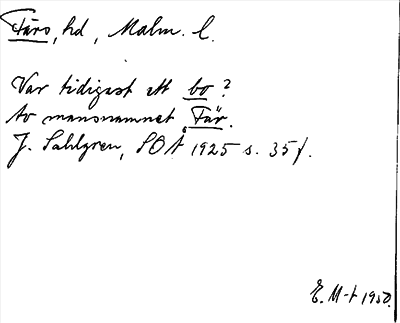 Färs, hd, Malm. l.
Var tidigast ett bo?
Av mansnamnet Fär.
J. Sahlgren, SOÅ 1925 s. 35 f.
E. M-t 1950.